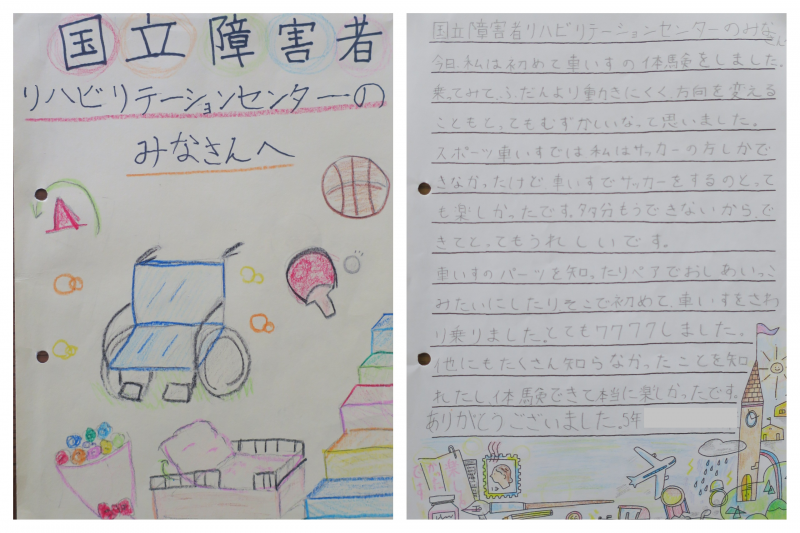 国立障害者
リハビリテーションセンターの
みなさんへ
国立障害者リハビリテーションセンターのみなさん
今日、私は初めて車いすの体験をしました。
乗ってみて、ふだんより動きにくく、方向を変える
こともとってもむずかしいなって思いました。
スポーツ車いすでは私はサッカーの方しかで
きなかったけど、車いすでサッカーをするのとって
も楽しかったです。多分もうできないから、で
きてとってもうれしいです。
車いすのパーツを知ったりペアでおしあいっこ
みたいにしたりそこで初めて、車いすをさわ
り乗りました。とてもワクワクしました。
他にもたくさん知らなかったことを知
れたし、体験できて本当に楽しかったです。
ありがとうございました。5年